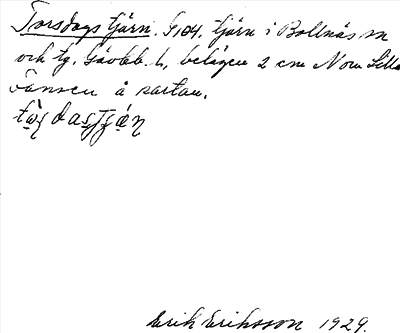 Torsdagstjärn. G104. tjärn i Bollnäs sn
och tg. Gävleb. L, belägen 2 cm N om Lilla
Vänsen å kartan.
Erik Eriksson 1929.